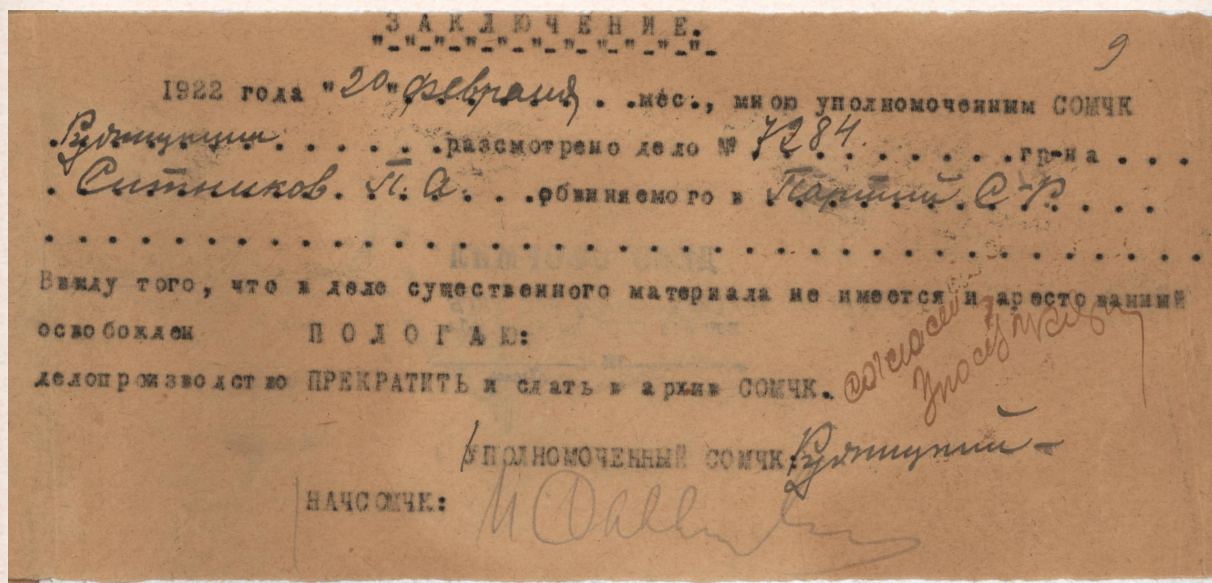 ЗАКЛЮЧЕНИЕ.
"-"-"-"-"-"-"-"-"-"-"-
9
1922 года "20" февраля . .мес., мною уполномоченным СОМЧК
. . . . . . .разсмотрено дело № 7284. . . . . . . .гр-на . . .
. Ситников. П. А. . . .обвиняемого в Партии С-Р. . . .
. . . . . . . . . . . . . . . . . . . . . . . . . . . . . . . . . . . . .
Ввиду того, что в деле существенного материала не имеется и арестованный
освобожден ПОЛОГАЮ:
делопроизводство ПРЕКРАТИТЬ и сдать в архив СОМЧК.
согласен
УПОЛНОМОЧЕННЫЙ СОМЧК:
НАЧСОМЧК: